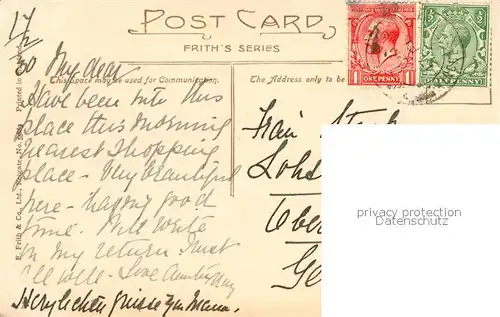 POST CARD
FRITH'S SERIES
This Space may be used for Communication.
The Address only to be
17/2
30 My dear
Have been into this
place this morning
nearest shopping
place - Very beautiful
here - having good
time. Will write
on my return Trust
all well - Love Aunty
Herzlichen Grüsse von Mama.
Frau
Lohs
Ober
Ge
F. Frith & Co., Ltd., Reigate, No.
Printed in
1 ONE PENNY 1
½ ½
HALFPENNY
privacy protection
Datenschutz